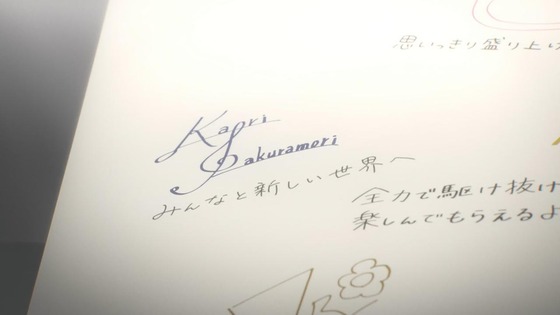 思いっきり盛り上
Kaori
Sakuramori
みんなと新しい世界へ
全力で駆け抜け
楽しんでもらえるよ